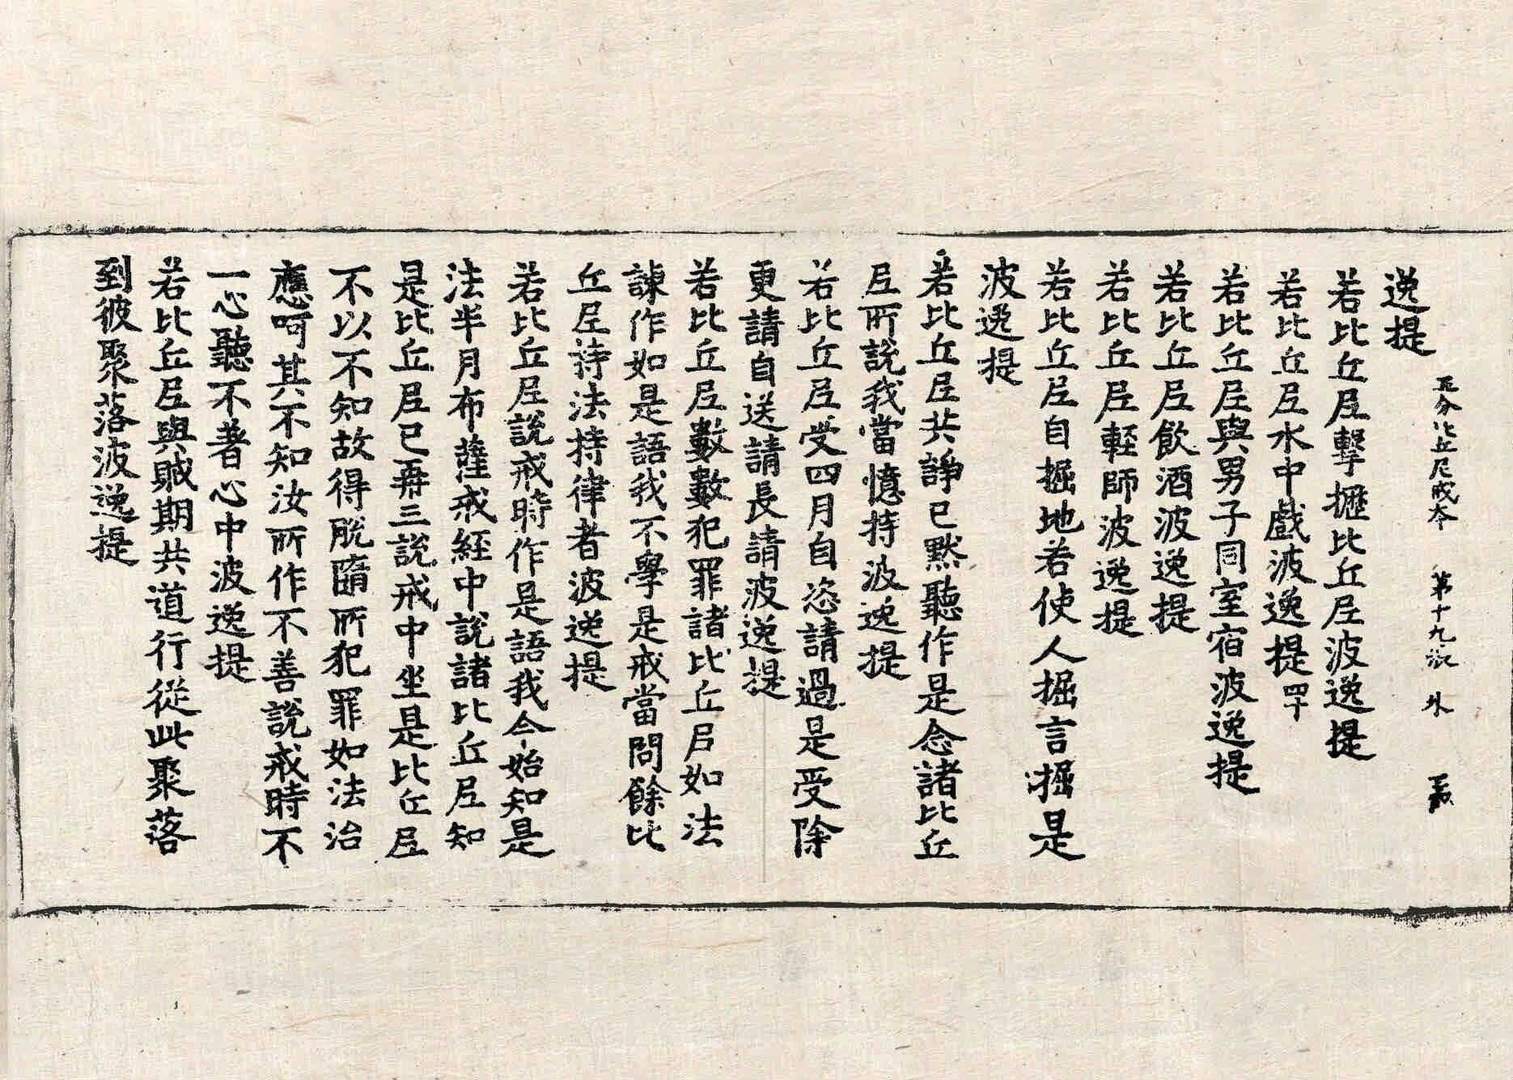 逸提
五分比丘尼戒本　第十九張　外
若比丘尼擊攊比丘尼波逸提
若比丘尼水中戲波逸提四十
若比丘尼與男子同室宿波逸提
若比丘尼飲酒波逸提
若比丘尼輕師波逸提
若比丘尼自掘地若使人掘言掘是
波逸提
若比丘尼共諍已黙聽作是念諸比丘
尼所說我當憶持波逸提
若比丘尼受四月自恣請過是受除
更請自送請長請波逸提
若比丘尼數數犯罪諸比丘尼如法
諫作如是語我不學是戒當問餘比
丘尼持法持律者波逸提
若比丘尼說戒時作是語我今始知是
法半月布薩戒經中說諸比丘尼知
是比丘尼已再三說戒中坐是比丘尼
不以不知故得脫隨所犯罪如法治
應呵其不知汝所作不善說戒時不
一心聽不著心中波逸提
若比丘尼與賊期共道行從此聚落
到彼聚落波逸提